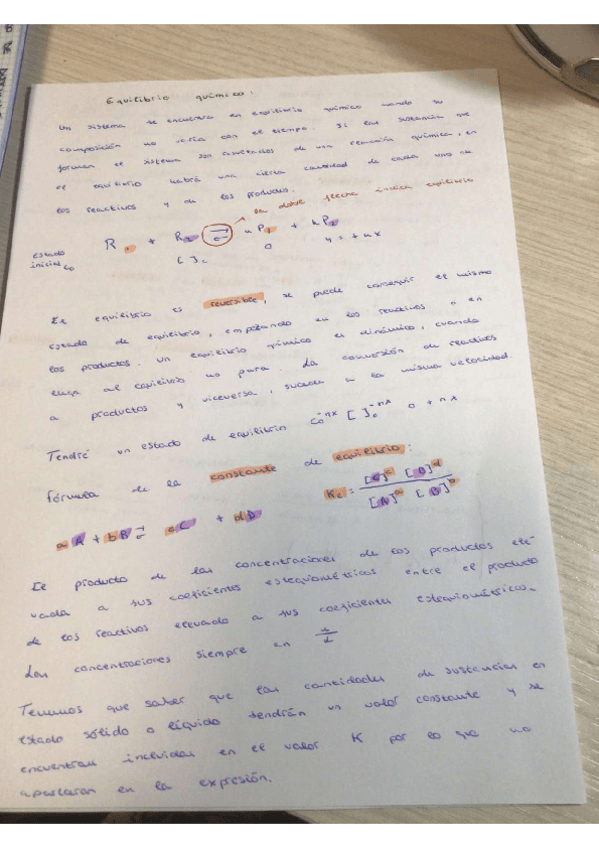 Equilibrio químico:
Un sistema se encuentra en equilibrio químico cuando su
composición no varía con el tiempo. Si las sustancias que
forman el sistema son resultados de una reacción química, en
el equilibrio habrá una cierta cantidad de cada uno de
los reactivos y de los productos.
la doble flecha indica equilibrio
R1 + R2 ⇌ u P1 + h P2
Estado inicial C0 [ ]c 0
El equilibrio es reversible, se puede conseguir el mismo
estado de equilibrio, empezando en los reactivos o en
los productos. Un equilibrio químico es dinámico, cuando
llega al equilibrio no para. La conversión de reactivos
a productos y viceversa, sucede a la misma velocidad
Tendré un estado de equilibrio C0^-nx [ ]0^-nx 0 + nx
fórmula de la constante de equilibrio:
aA + bB ⇌ cC + dD Kc = [C]^c [D]^d / [A]^a [B]^b
El producto de las concentraciones de los productos ele
vada a sus coeficientes estequiométricos entre el producto
de los reactivos elevado a sus coeficientes estequiométricos.
Las concentraciones siempre en
Tenemos que saber que las cantidades de sustancias en
estado sólido o líquido tendrán un valor constante y se
encuentran incluidas en el valor K por lo que no
aparecerán en la expresión.